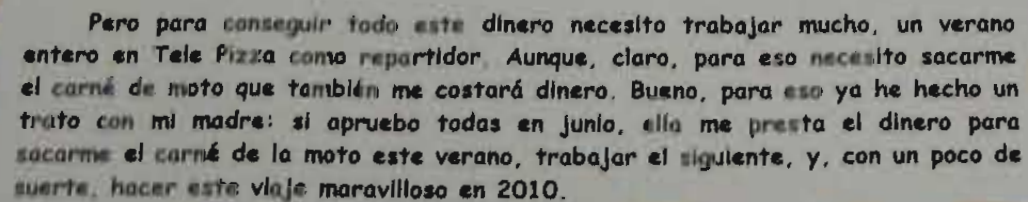 Pero para conseguir todo este dinero necesito trabajar mucho, un verano
entero en Tele Pizza como repartidor. Aunque, claro, para eso necesito sacarme
el carné de moto que también me costará dinero. Bueno, para eso ya he hecho un
trato con mi madre: si apruebo todas en junio, ella me presta el dinero para
sacarme el carné de la moto este verano, trabajar el siguiente, y, con un poco de
suerte, hacer este viaje maravilloso en 2010.